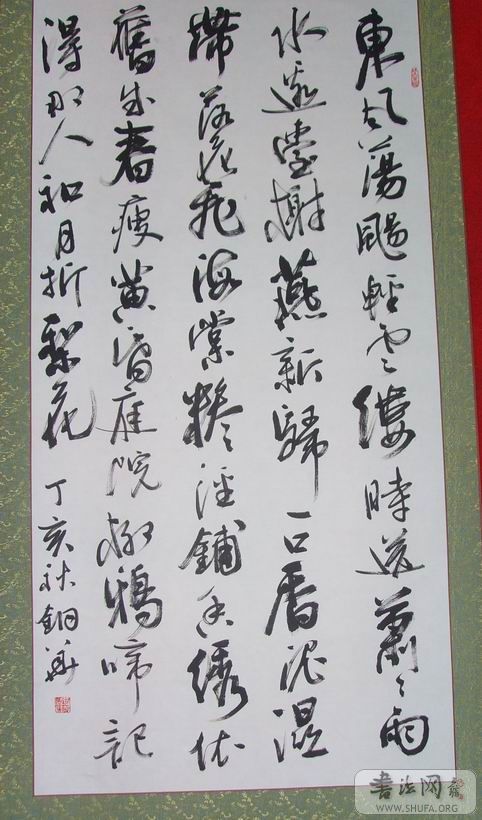 東風蕩颺輕雲縷時送蕭々雨
水邊臺榭燕新歸一口香泥濕
帶落花飛海棠糝徑鋪香繡依
舊成春瘦黃昏庭院柳鴉啼記
得那人和月折梨花
丁亥秋
书法网
WWW.SHUFA.ORG